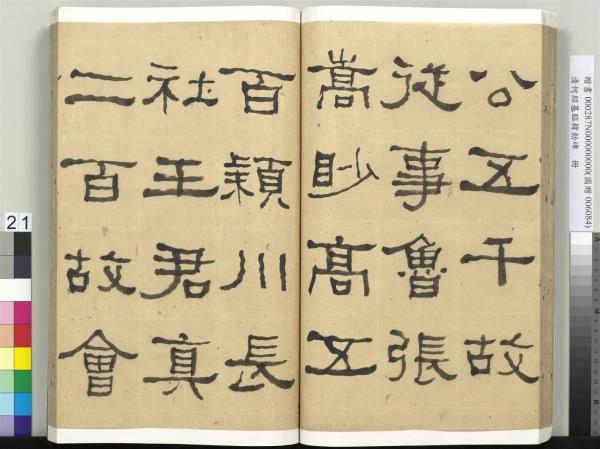 公五千故
從事魯張
嵩眇高五
百穎川長
社王君真
二百故會
贈書 000287N000000000(國贈 006084)
清何紹基臨韓勅碑 冊
21